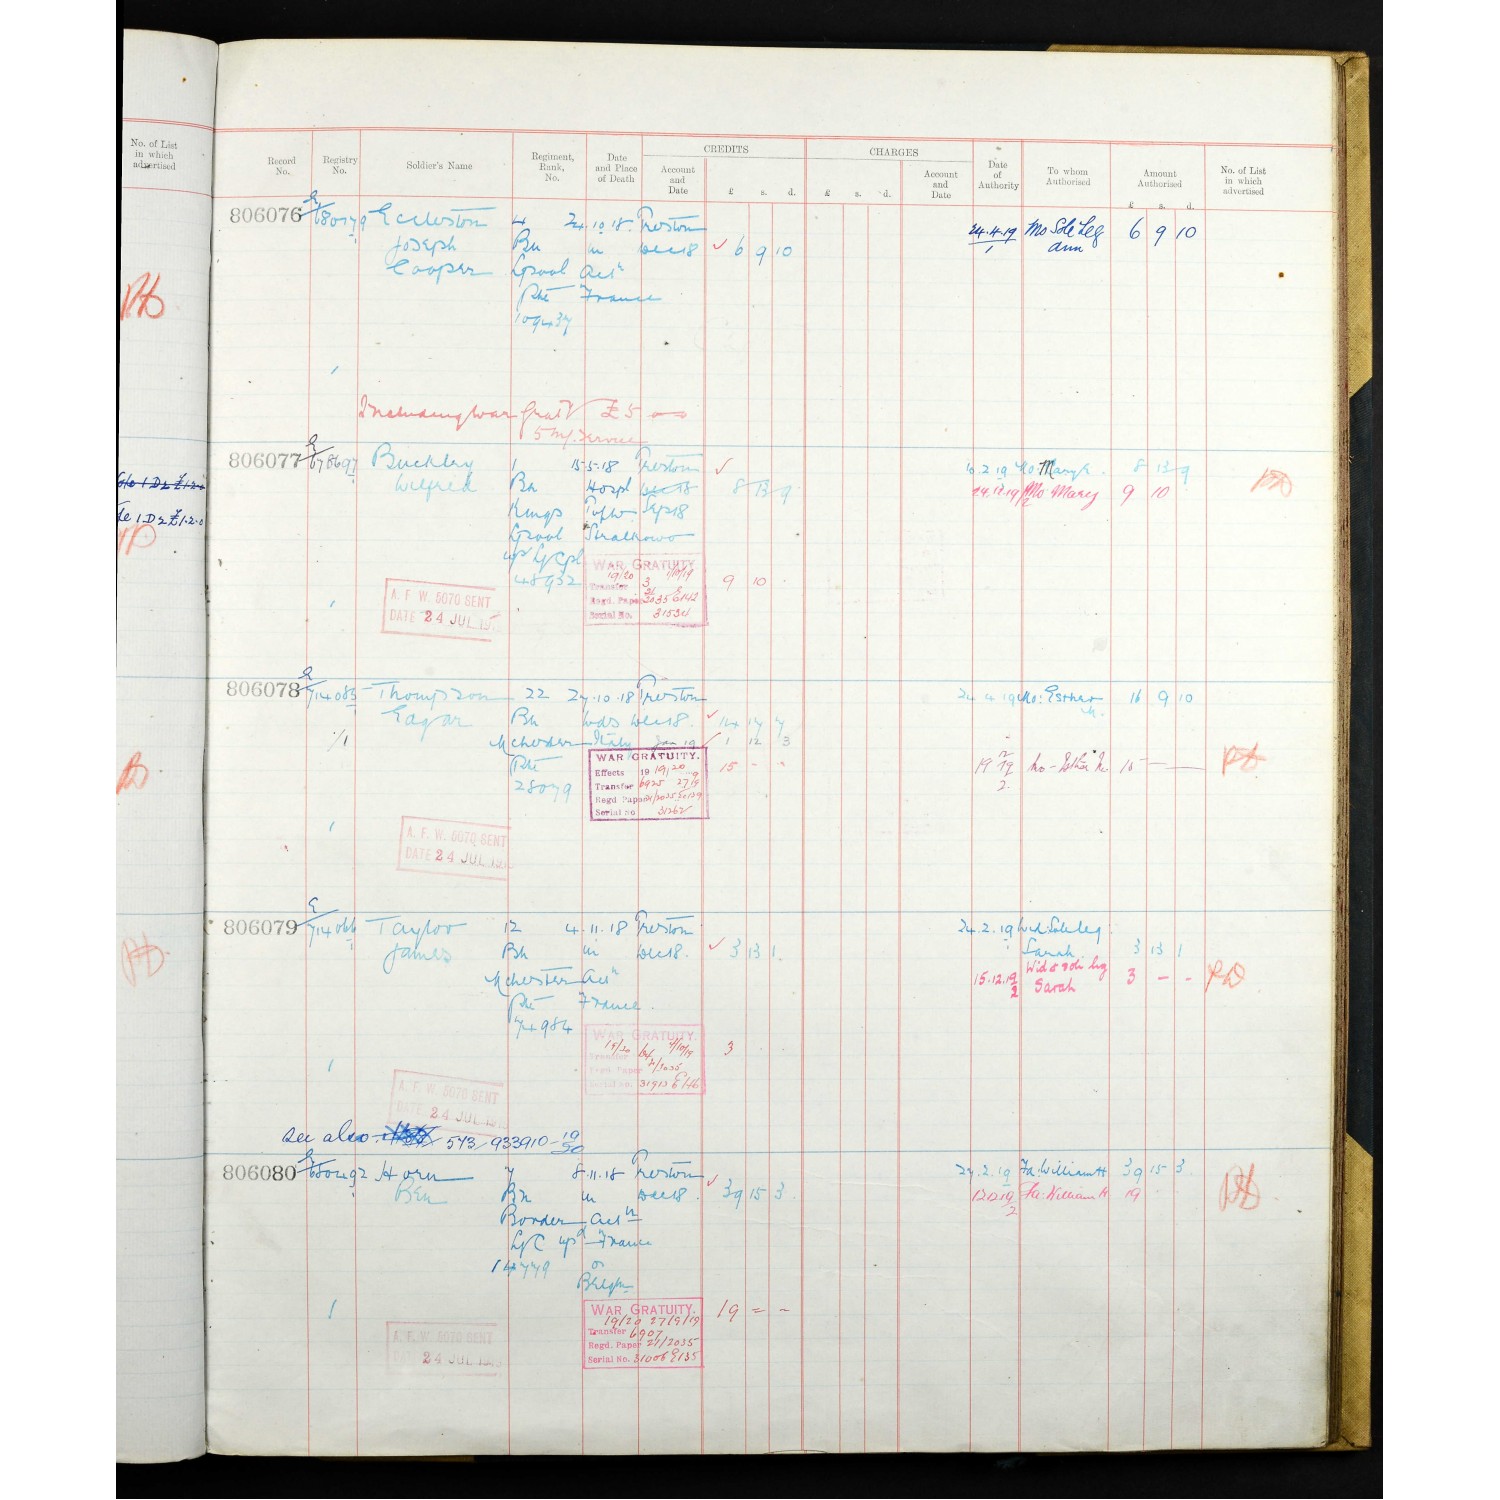 No. of List
in which
advertised
Record
No.
Registry
No.
Soldier's Name
Regiment,
Rank,
No.
Date
and Place
of Death
CREDITS
Account
and
Date
£ s. d.
CHARGES
£ s. d.
Account
and
Date
Date
of
Authority
To whom
Authorised
Amount
Authorised
£ s. d.
No. of List
in which
advertised
806076 E/680779 Eccleston 4 24.10.18. Preston 24.4.19 Mo Sole Leg 6 9 10
Joseph Bn in Dec 18 6 9 10 1 Ann
Cooper Lpool Actn
Pte France
109437
Including War Grat £5
5 Ms. Service
806077 E/678697 Buckley 1 15.5.18 Preston 10.2.19 Mo: Mary 8 13 9
Wilfred Bn Hospl Dec 18 8 13 9 Mo Mary 9 10
Kings Sep 18
Lpool
up L/Cpl
48932
WAR GRATUITY
19/20
Transfer 3
Regd. Paper
Serial No. 31534
9 10
A. F. W. 5070 SENT
DATE 24 JUL 19
806078 E/714085 Thompson 22 27.10.18 Preston 24 4 19 Mo: Esther 16 9 10
Edgar Bn Wds Dec 18. 14 17 7 M.
Mchester Italy Jan 19 1 12 3
Pte
28079
WAR GRATUITY.
Effects 19 19/20
Transfer 6925 27/9
Regd Paper
Serial no 31262
15 - -
Mo - Esther M. 15
A. F. W. 5070 SENT
DATE 24 JUL 19
806079 E/714066 Taylor 12 4.11.18 Preston 24.2.19 Wid: Sole leg.
James Bn in Dec 18. 3 13 1 Sarah 3 13 1
Mchester Actn 15.12.19 Wid & sole leg 3 - -
Pte France. 2 Sarah
74984
WAR GRATUITY.
19/20
Transfer
Regd. Paper 21/2035
Serial no. 31913 E146
3
A. F. W. 5070 SENT
DATE 24 JUL 19
see also 573/933910-19/20
806080 E/680492 Horn 7 8.11.18 Preston 27.2.19 Fa: William H 39 15 3
Ben Bn in Dec 18. 39 15 3 Fa: William H 19
Border Actn
L/C up France
14779 or
Belgm
WAR GRATUITY.
19/20 27/9/19
Transfer 6907
Regd. Paper 21/2035
Serial No. 31006 E135
19 = -
A. F. W. 5070 SENT
DATE 24 JUL 19